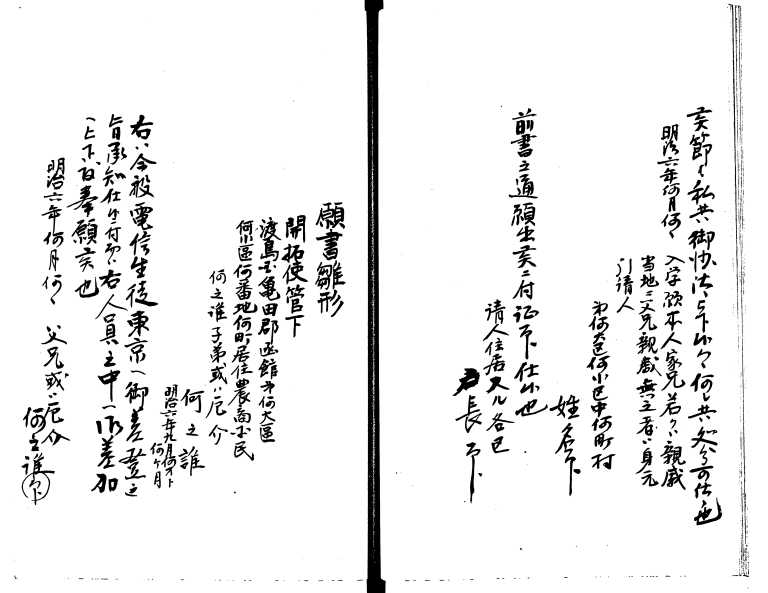 候節ハ私共御作法ニ何レ共処分可仕也
明治六年何月何日
入学願本人家兄若クハ親戚
当地ニ父兄親戚無之者ハ身元
引請人
第何大区何小区中何町村
姓名印
前書之通願出候ニ付証印仕候也
請人住居スル各区
戸長印
願書雛形
開拓使管下
渡島国亀田郡函館第何大区
何小区何番地何町居住農商平民
何之誰子弟或ハ厄介
何之誰
明治六年九月何才ト
何ヶ月
右ハ今般電信生徒東京ヘ御差登之
旨承知仕候ニ付右人員之中ヘ御差加
ヘ被下度奉願候也
明治六年何月何日
父兄或ハ厄介
何之誰印